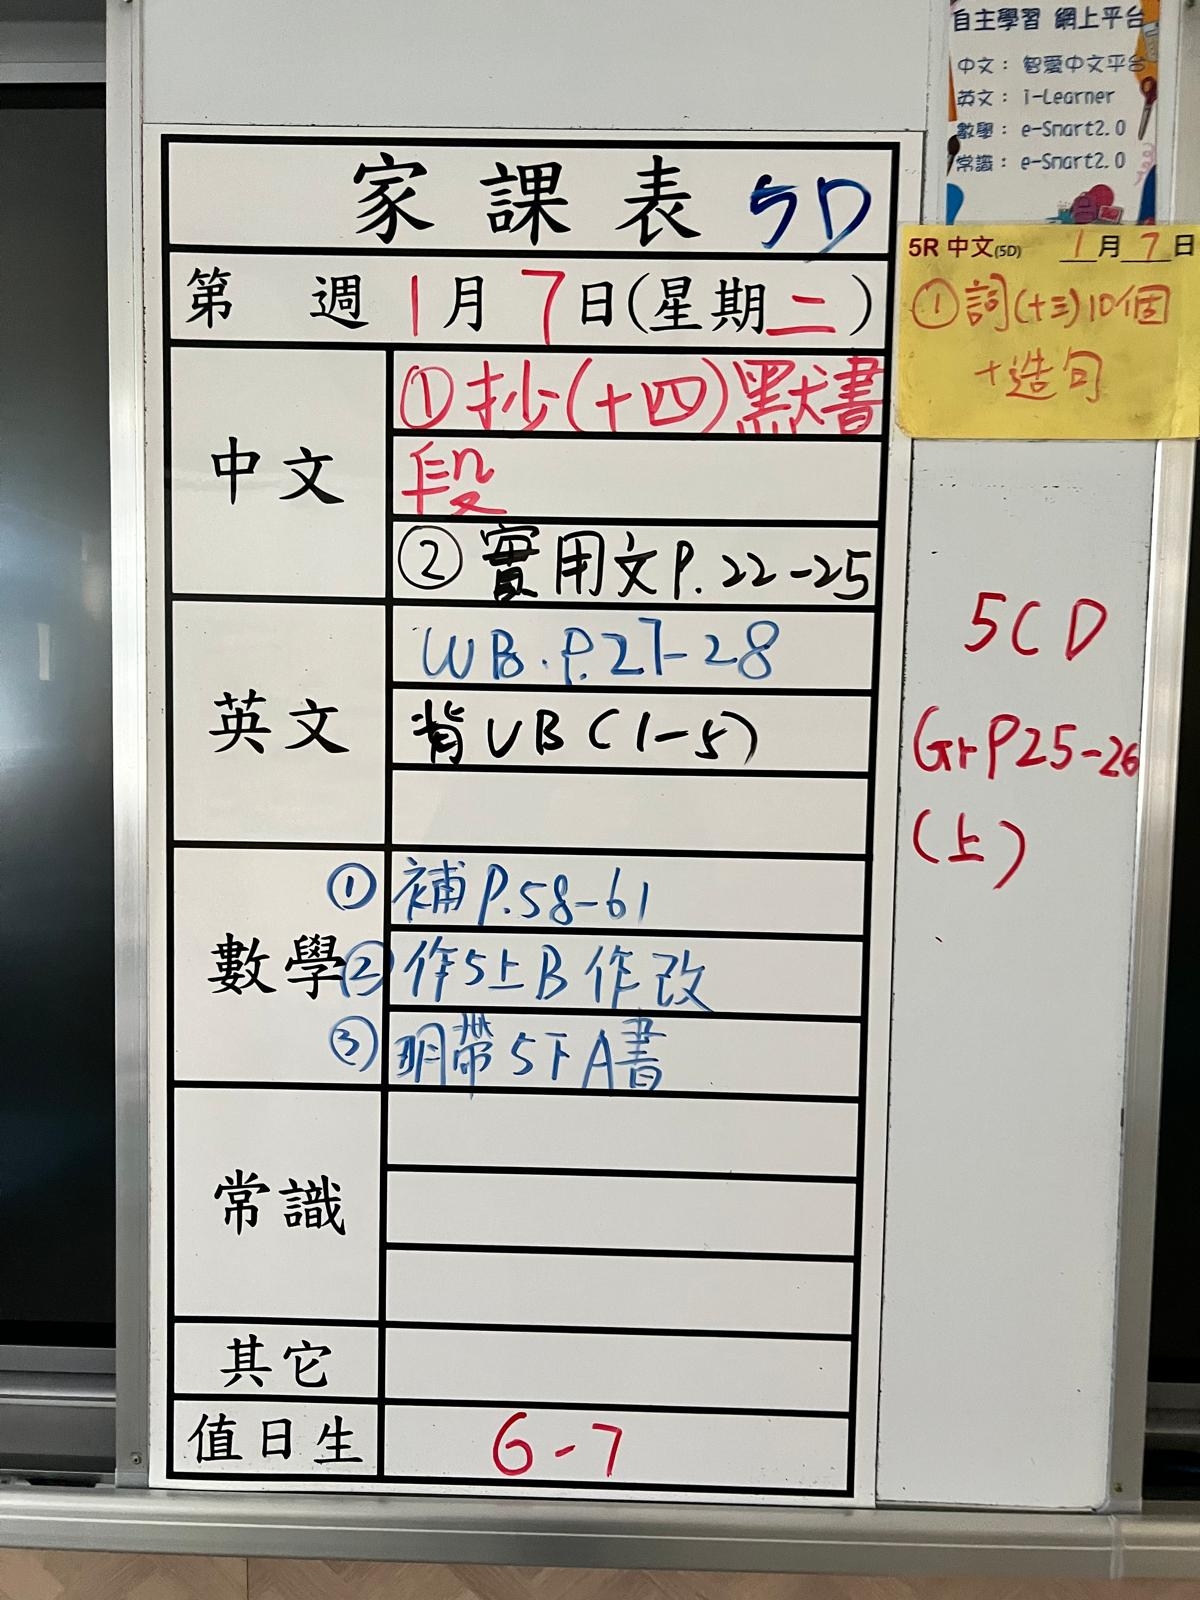 自主學習 網上平台
中文： 智愛中文平台
英文： i-Learner
數學： e-Smart2.0
常識： e-Smart2.0
家課表 5D
第 週 1月7日(星期二)
中文
①抄(十四)默書
段
②實用文P.22-25
英文
WB.P.27-28
背VB(1-5)
數學
①補P.58-61
②作5上B作改
③明帶5下A書
常識
其它
值日生 6-7
5R 中文(5D) 1月7日
①詞(十三)10個
+造句
5CD
GrP25-26
(上)